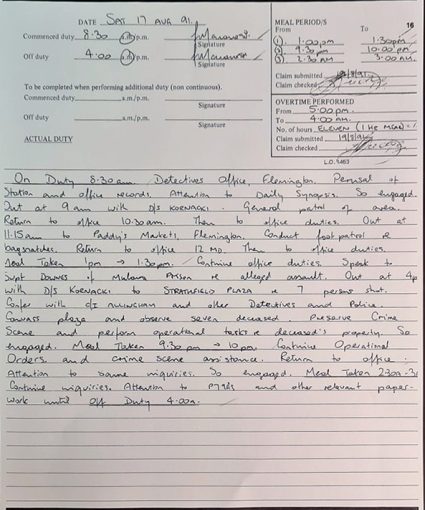 DATE SAT 17 AUG 91.
Commenced duty 8.30 a.m/p.m.
Signature
Off duty 4.00 a.m/p.m.
Signature
To be completed when performing additional duty (non continuous).
Commenced duty a.m./p.m.
Signature
Off duty a.m./p.m.
Signature
ACTUAL DUTY
MEAL PERIOD/S 16
From To
(1). 1:00pm 1:30pm
(2) 9:30pm 10.00pm
(3) 2:30 AM 3:00AM
Claim submitted 19/8/91
Claim checked
OVERTIME PERFORMED
From 5:00pm
To 4:00am.
No. of hours ELEVEN (1 HR MEAL)
Claim submitted 19/8/91
Claim checked
L.O. 1463
On Duty 8.30am. Detectives Office, Flemington. Perusal of
Station and office records. Attention to Daily Synopsis. So engaged.
Out at 9am with D/S KORNACKI. General patrol of area.
Return to office 10.30am. Then to office duties. Out at
11.15am to Paddy's Markets, Flemington. Conduct foot patrol re
bagsnatches. Return to office 12 MD. Then to office duties.
Meal Taken 1pm → 1:30pm. Continue office duties. Speak to
Supt DOWNS of Mulawa Prison re alleged assault. Out at 4p
with D/S KORNACKI to STRATHFIELD PLAZA re 7 persons shot.
Confer with and other Detectives and Police.
Canvass plaza and observe seven deceased. Preserve Crime
Scene and perform operational tasks re deceased's property. So
engaged. Meal Taken 9.30pm → 10pm. Continue Operational
Orders, and crime scene assistance. Return to office.
Attention to same inquiries. So engaged. Meal Taken 2.30am-3
Continue inquiries. Attention to P79As and other relevant paper-
work until Off Duty 4.00a.